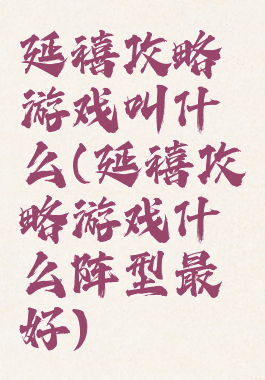 延禧攻略
游戏叫什
么(延禧攻
略游戏什
么阵型最
好)